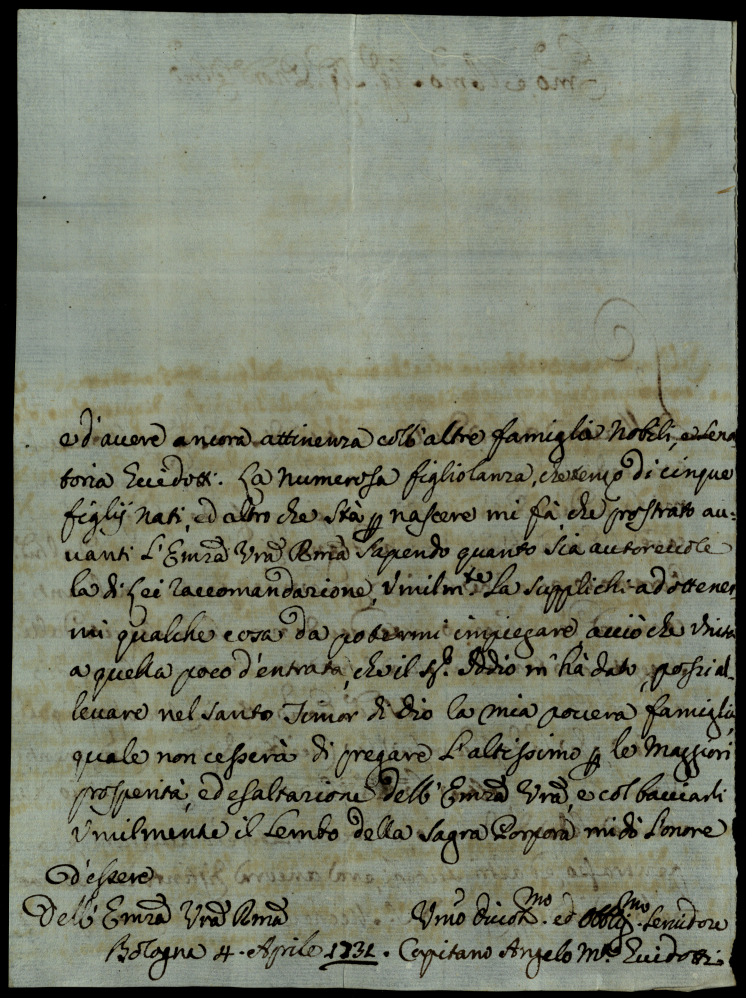 e d'avere ancora attinenza coll'altre famiglia Nobili, e Sena
toria Guidotti. La numerosa figliolanza, che tengo di cinque
figlij nati, ed altro che stà p nascere mi fà, che prostrato av:
vanti L'Emza Vra Rma sapendo quanto sia autorevole
la di Lei raccomandazione, Umilmte La supplichi ad ottener
mi qualche cosa da potermi impiegare acciò che Unita
a quella poco d'entrata, che il Sr. Iddio m'hà dato, possi al-
levare nel Santo Timor di Dio la mia povera famiglia,
quale non cesserà di pregare L'altissimo p le Maggiori
prosperità, ed esaltazione dell'Emza Vra, e col bacciarli
Umilmente il Lembo della Sagra Porpora mi dò l'onore
d'essere
Dell'Emza Vra Rma
Umo divotmo. ed Obbligmo. Servidore
Bologna 4. Aprile 1731.
Capitano Angelo Ma. Guidotti